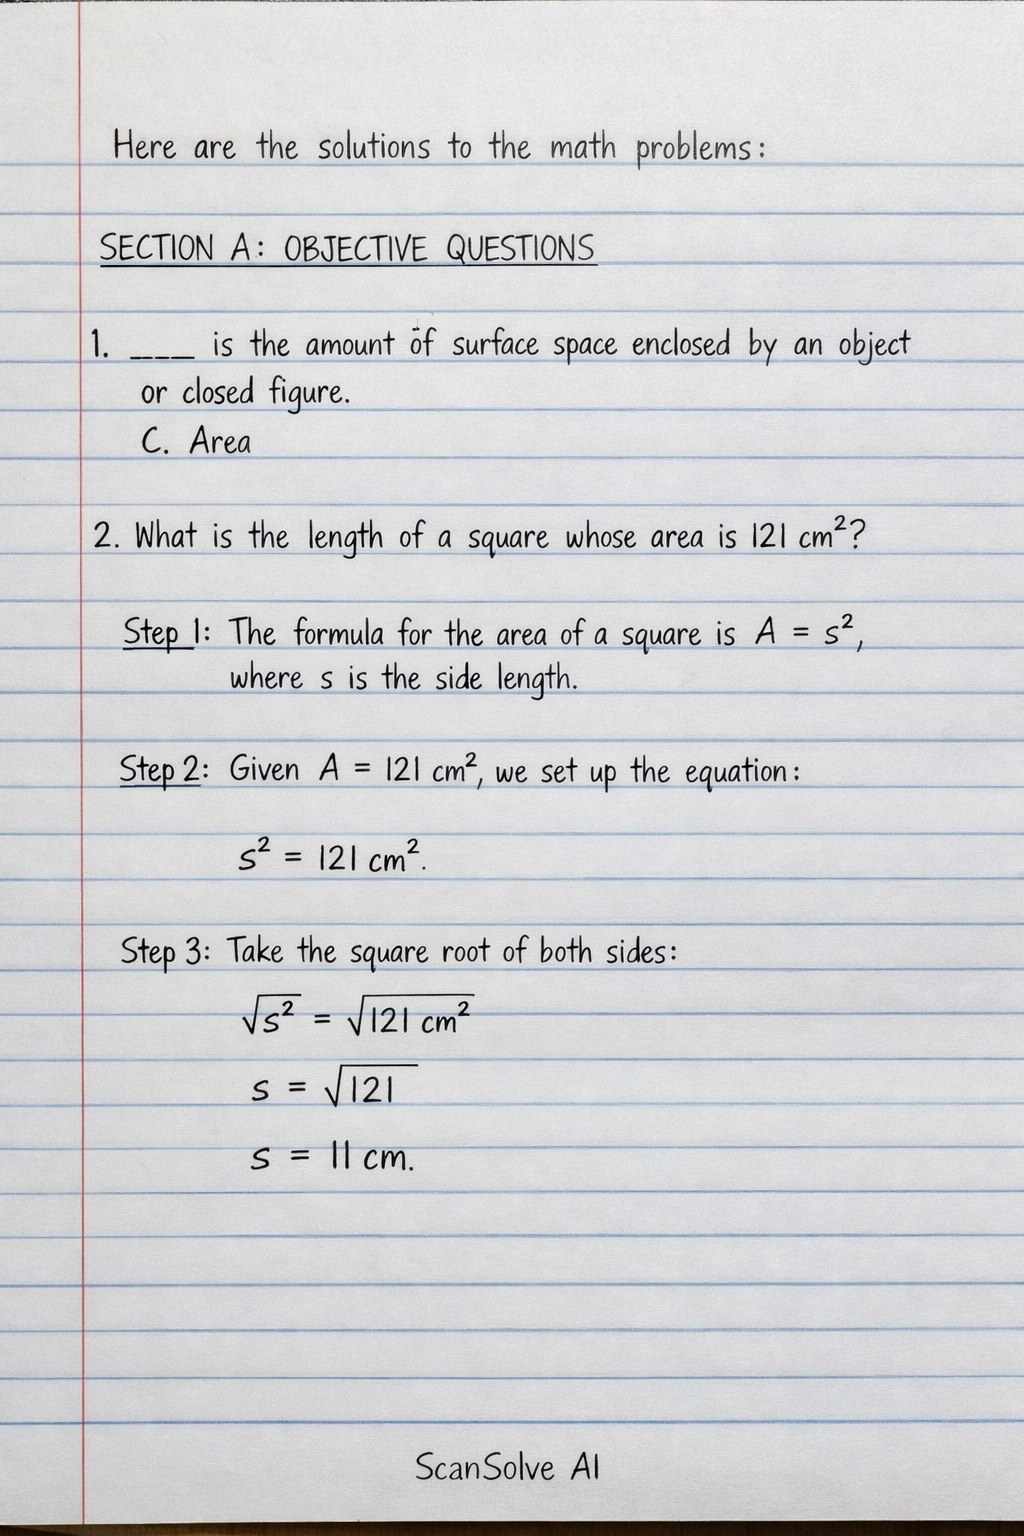 Here are the solutions to the math problems:
SECTION A: OBJECTIVE QUESTIONS
1. ____ is the amount of surface space enclosed by an object
or closed figure.
C. Area
2. What is the length of a square whose area is 121 cm²?
Step 1: The formula for the area of a square is A = s²,
where s is the side length.
Step 2: Given A = 121 cm², we set up the equation:
s² = 121 cm².
Step 3: Take the square root of both sides:
√s² = √121 cm²
s = √121
s = 11 cm.
ScanSolve AI